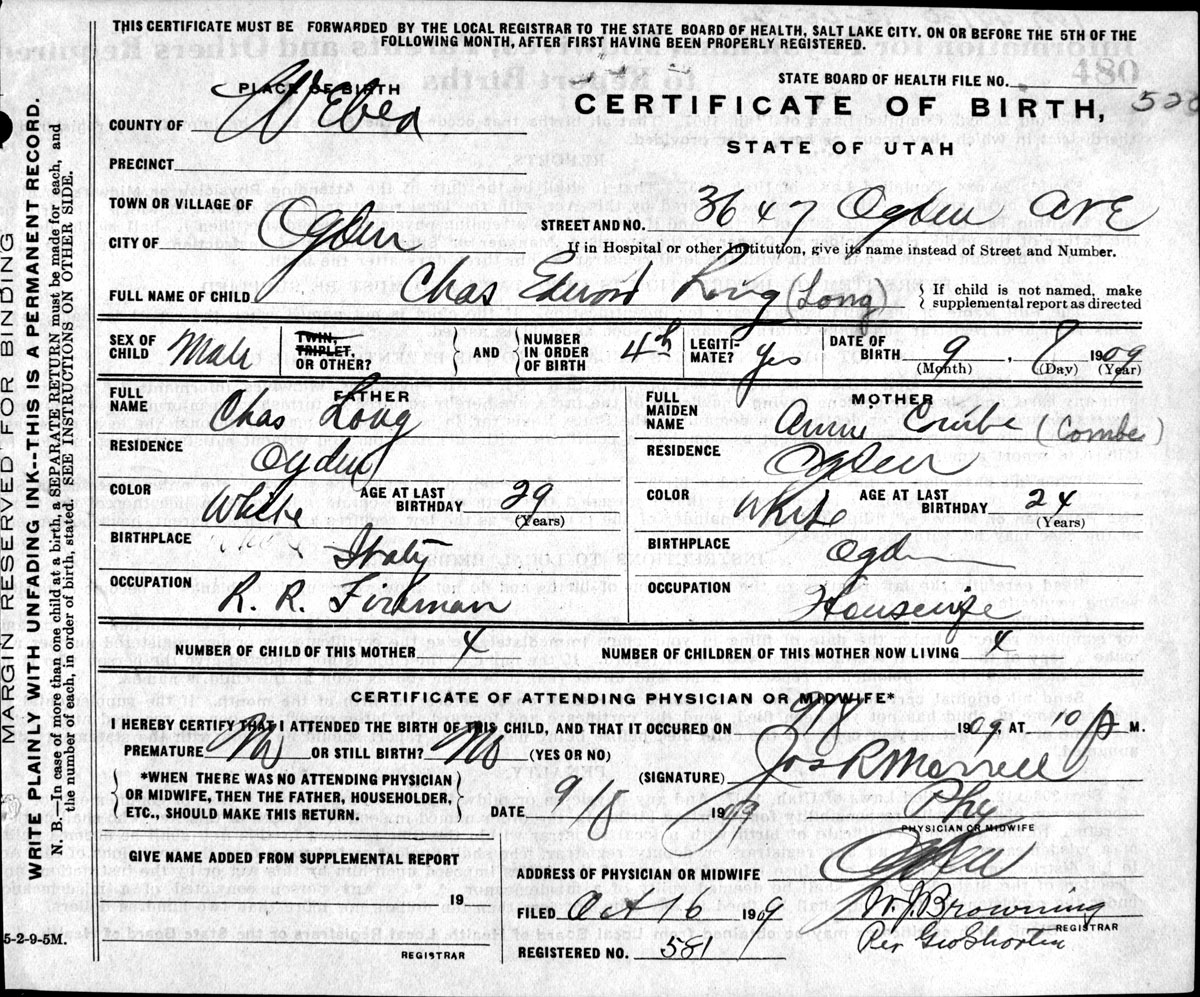 THIS CERTIFICATE MUST BE FORWARDED BY THE LOCAL REGISTRAR TO THE STATE BOARD OF HEALTH, SALT LAKE CITY. ON OR BEFORE THE 5TH OF THE
FOLLOWING MONTH, AFTER FIRST HAVING BEEN PROPERLY REGISTERED.
MARGIN RESERVED FOR BINDING
WRITE PLAINLY WITH UNFADING INK--THIS IS A PERMANENT RECORD.
N. B.—In case of more than one child at a birth, a SEPARATE RETURN must be made for each, and
the number of each, in order of birth, stated. SEE INSTRUCTIONS ON OTHER SIDE.
PLACE OF BIRTH
STATE BOARD OF HEALTH FILE NO.
480
CERTIFICATE OF BIRTH,
STATE OF UTAH
COUNTY OF Weber
PRECINCT
TOWN OR VILLAGE OF
CITY OF Ogden
STREET AND NO. 3647 Ogden AVE
If in Hospital or other Institution, give its name instead of Street and Number.
FULL NAME OF CHILD Chas Edward Long (Long)
{ If child is not named, make
supplemental report as directed
SEX OF CHILD Male
TWIN, TRIPLET, OR OTHER?
AND
NUMBER IN ORDER OF BIRTH 4th
LEGITI-MATE? yes
DATE OF BIRTH 9, 8 1909
(Month) (Day) (Year)
FATHER
FULL NAME Chas Long
RESIDENCE Ogden
COLOR White AGE AT LAST BIRTHDAY 29 (Years)
BIRTHPLACE Italy
OCCUPATION R. R. Fireman
MOTHER
FULL MAIDEN NAME Annie Combe (Combe)
RESIDENCE Ogden
COLOR White AGE AT LAST BIRTHDAY 24 (Years)
BIRTHPLACE Ogden
OCCUPATION Housewife
NUMBER OF CHILD OF THIS MOTHER 4 NUMBER OF CHILDREN OF THIS MOTHER NOW LIVING 4
CERTIFICATE OF ATTENDING PHYSICIAN OR MIDWIFE*
I HEREBY CERTIFY THAT I ATTENDED THE BIRTH OF THIS CHILD, AND THAT IT OCCURED ON 9/8 1909, AT 10 A M.
PREMATURE No OR STILL BIRTH? No (YES OR NO)
*WHEN THERE WAS NO ATTENDING PHYSICIAN
OR MIDWIFE, THEN THE FATHER, HOUSEHOLDER,
ETC., SHOULD MAKE THIS RETURN.
(SIGNATURE) Jos R Morrell
DATE 9/8 1909 Phy
PHYSICIAN OR MIDWIFE
GIVE NAME ADDED FROM SUPPLEMENTAL REPORT
19
REGISTRAR
ADDRESS OF PHYSICIAN OR MIDWIFE Ogden
FILED Oct 16 1909 W. J. Browning
REGISTRAR
Per Geo Shorten
REGISTERED NO. 581
5-2-9-5M.